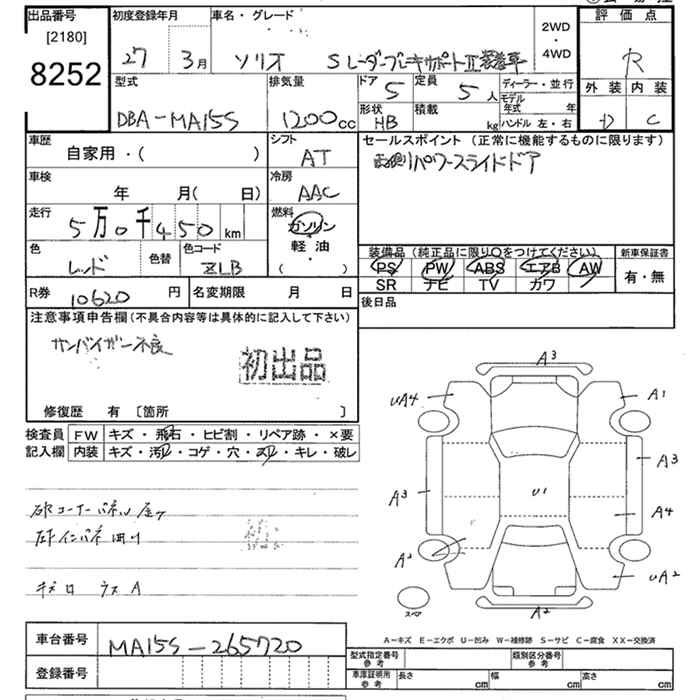 出品番号 初度登録年月 車名・グレード 評価点
[2180] 2WD
8252 27 3月 ソリオ SレーダーブレーキサポートⅡ装着車 ・ R
4WD
型式 排気量 ドア 5 定員 5人 ディーラー・並行 外装 内装
モデル年式 年
DBA-MA15S 1200cc 形状 HB 積載 kg ハンドル 左・右 D C
車歴 シフト セールスポイント (正常に機能するものに限ります)
自家用・( ) AT パワースライドドア
車検 冷房
年 月( 日) AAC
走行 燃料
5万0千450km ガソリン
・
色 色替 色コード 軽油 装備品 (純正品に限り○をつけてください) 新車保証書
レッド ZLB ( ) PS PW ABS エアB AW 有・無
SR ナビ TV カワ
R券 10620円 名変期限 月 日 後日品
注意事項申告欄 (不具合内容等は具体的に記入して下さい)
サンバイザー不良
初出品
修復歴 有 〔箇所 〕
検査員 FW キズ・飛石・ヒビ割・リペア跡・×要
記入欄 内装 キズ・汚れ・コゲ・穴・スレ・キレ・破レ
A3
UA4 A1
A3 U1 A3
A4
A2 UA2
A2
スペア
キズ ロ ラス A
A-キズ E-エクボ U-凹み W-補修跡 S-サビ C-腐食 XX-交換済
車台番号 MA15S-265720
型式指定番号 参考 類別区分番号 参考
登録番号
車庫証明用 参考 長さ cm 幅 cm 高さ cm